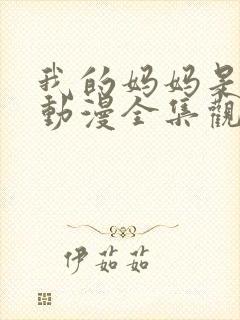 我的妈妈是
動漫全集觀
伊茹茹